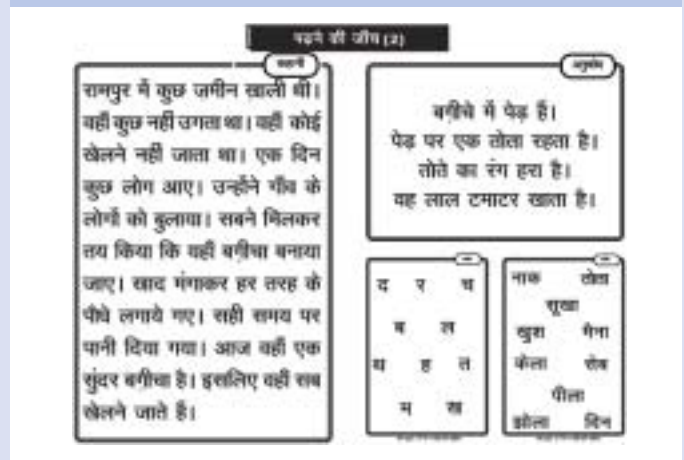 पढ़ने की जाँच (2)
कहानी
रामपुर में कुछ ज़मीन खाली थी।
वहाँ कुछ नहीं उगता था। वहाँ कोई
खेलने नहीं जाता था। एक दिन
कुछ लोग आए। उन्होंने गाँव के
लोगों को बुलाया। सबने मिलकर
तय किया कि वहाँ बग़ीचा बनाया
जाए। खाद मंगाकर हर तरह के
पौधे लगाये गए। सही समय पर
पानी दिया गया। आज वहाँ एक
सुंदर बगीचा है। इसलिए वहाँ सब
खेलने जाते हैं।
अनुच्छेद
बग़ीचे में पेड़ हैं।
पेड़ पर एक तोता रहता है।
तोते का रंग हरा है।
वह लाल टमाटर खाता है।
द र च
ब ल
थ ह त
म ख
नाक तोता
सूखा
खुश मैना
केला
पीला
झोला दिन